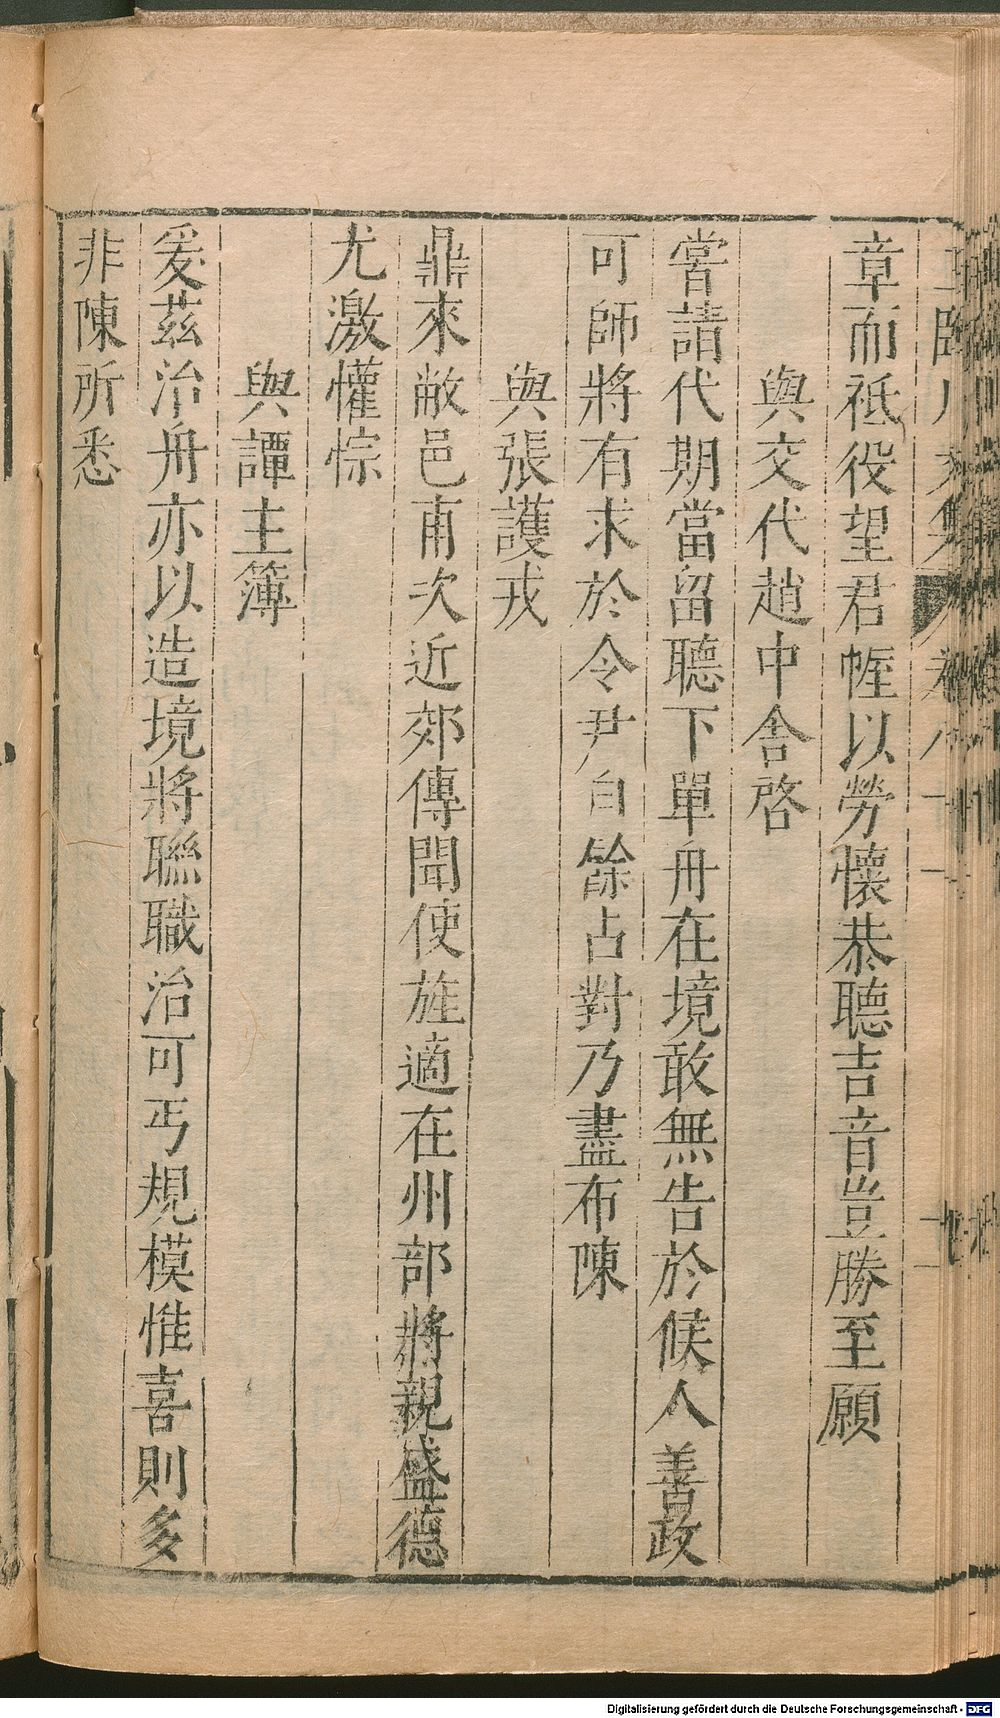 章而祗役望君幄以勞懷恭聽吉音豈勝至願
與交代趙中舍啓
嘗請代期當留聽下單舟在境敢無告於候人善政
可師將有求於令尹自餘占對乃盡布陳
與張護戎
鼎來敝邑甫次近郊傳聞使旌適在州部將親盛德
尤激懽悰
與譚主簿
爰茲治舟亦以造境將聯職治可丐規模惟喜則多
非陳所悉
Digitalisierung gefördert durch die Deutsche Forschungsgemeinschaft - DFG